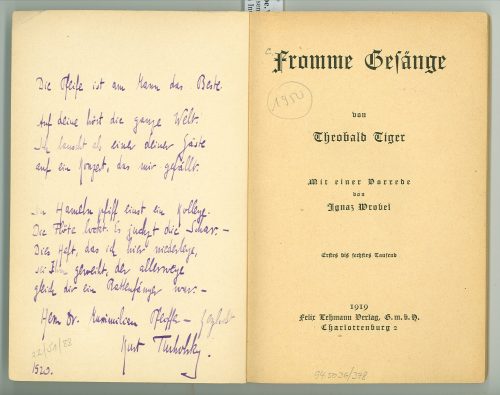 Die Pfeife ist am Mann das Beste.
Auf deine hört die ganze Welt.
Ich lausch als einer deiner Gäste
auf ein Konzert, das mir gefällt.
In Hameln pfiff einst ein Kollege.
Die Flöte lockt. Es juchzt die Schar. –
Dies Heft, das ich hier niederlege,
sei Ihm geweiht, der allerwege
gleich dir ein Rattenfänger war. –
Herrn Dr. Maximilian Pfeiffer –
Kurt Tucholsky.
1920.
Fromme Gesänge
1920
von
Theobald Tiger
Mit einer Vorrede
von
Ignaz Wrobel
Erstes bis sechstes Tausend
1919
Felix Lehmann Verlag, G. m. b. H.
Charlottenburg 2